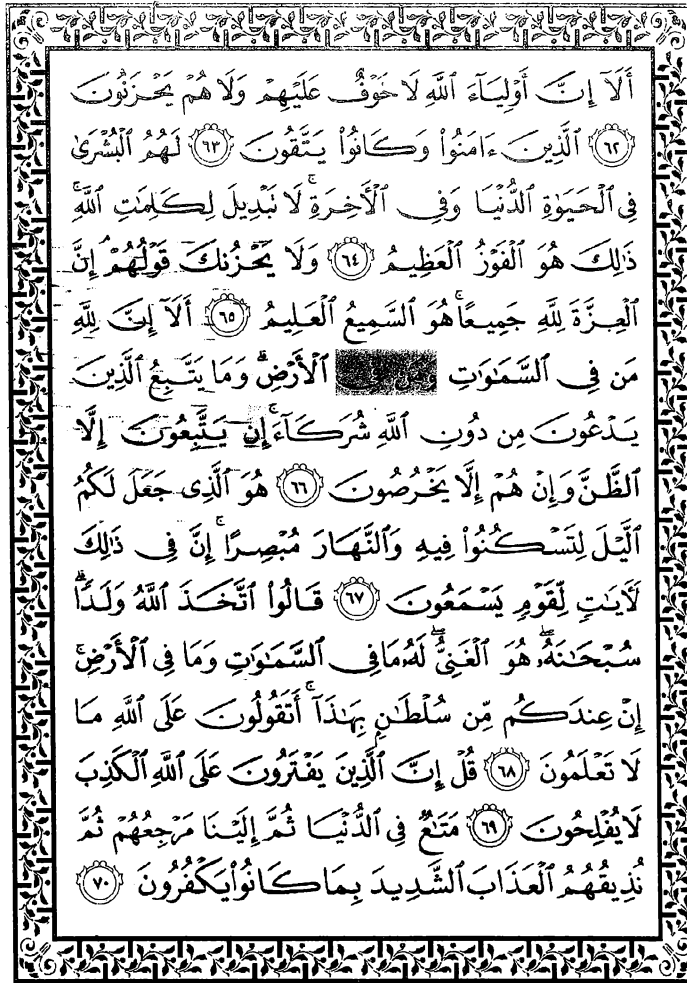 أَلَآ إِنَّ أَوْلِيَآءَ ٱللَّهِ لَا خَوْفٌ عَلَيْهِمْ وَلَا هُمْ يَحْزَنُونَ
﴿٦٢﴾ ٱلَّذِينَ ءَامَنُوا۟ وَكَانُوا۟ يَتَّقُونَ ﴿٦٣﴾ لَهُمُ ٱلْبُشْرَىٰ
فِى ٱلْحَيَوٰةِ ٱلدُّنْيَا وَفِى ٱلْأَخِرَةِ ۚ لَا نَبْدِيلَ لِكَلِمَٰتِ ٱللَّهِ ۚ
ذَٰلِكَ هُوَ ٱلْفَوْزُ ٱلْعَظِيمُ ﴿٦٤﴾ وَلَا يَحْزُنكَ قَوْلُهُمْ ۘ إِنَّ
ٱلْعِزَّةَ لِلَّهِ جَمِيعًا ۚ هُوَ ٱلسَّمِيعُ ٱلْعَلِيمُ ﴿٦٥﴾ أَلَآ إِنَّ لِلَّهِ
مَن فِى ٱلسَّمَٰوَٰتِ وَمَن فِى ٱلْأَرْضِ ۗ وَمَا يَتَّبِعُ ٱلَّذِينَ
يَدْعُونَ مِن دُونِ ٱللَّهِ شُرَكَآءَ ۚ إِن يَتَّبِعُونَ إِلَّا
ٱلظَّنَّ وَإِنْ هُمْ إِلَّا يَخْرُصُونَ ﴿٦٦﴾ هُوَ ٱلَّذِى جَعَلَ لَكُمُ
ٱلَّيْلَ لِتَسْكُنُوا۟ فِيهِ وَٱلنَّهَارَ مُبْصِرًا ۚ إِنَّ فِى ذَٰلِكَ
لَأَيَٰتٍ لِّقَوْمٍ يَسْمَعُونَ ﴿٦٧﴾ قَالُوا۟ ٱتَّخَذَ ٱللَّهُ وَلَدًا ۗ
سُبْحَٰنَهُۥ ۖ هُوَ ٱلْغَنِىُّ ۖ لَهُۥ مَا فِى ٱلسَّمَٰوَٰتِ وَمَا فِى ٱلْأَرْضِ ۚ
إِنْ عِندَكُم مِّن سُلْطَٰنٍۭ بِهَٰذَآ ۚ أَتَقُولُونَ عَلَى ٱللَّهِ مَا
لَا تَعْلَمُونَ ﴿٦٨﴾ قُلْ إِنَّ ٱلَّذِينَ يَفْتَرُونَ عَلَى ٱللَّهِ ٱلْكَذِبَ
لَا يُفْلِحُونَ ﴿٦٩﴾ مَتَٰعٌ فِى ٱلدُّنْيَا ثُمَّ إِلَيْنَا مَرْجِعُهُمْ ثُمَّ
نُذِيقُهُمُ ٱلْعَذَابَ ٱلشَّدِيدَ بِمَا كَانُوا۟ يَكْفُرُونَ ﴿٧٠﴾